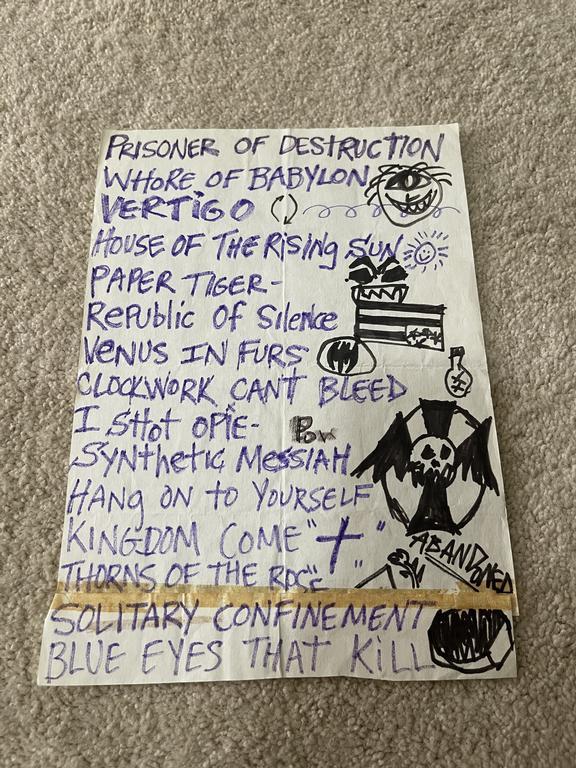 PRISONER OF DESTRUCTION
WHORE OF BABYLON
VERTIGO
HOUSE OF THE RISING SUN
PAPER TIGER-
RePublic OF Silence
VENUS IN FURS
CLOCKWORK CANT BLEED
I SHOT OPIE- POW
SYNTHETIC MESSIAH
HANG ON to YOURSELF
KINGDOM COME "+"
ABANDONED
THORNS OF THE ROSE "
SOLITARY CONFINEMENT
BLUE EYES THAT KiLL